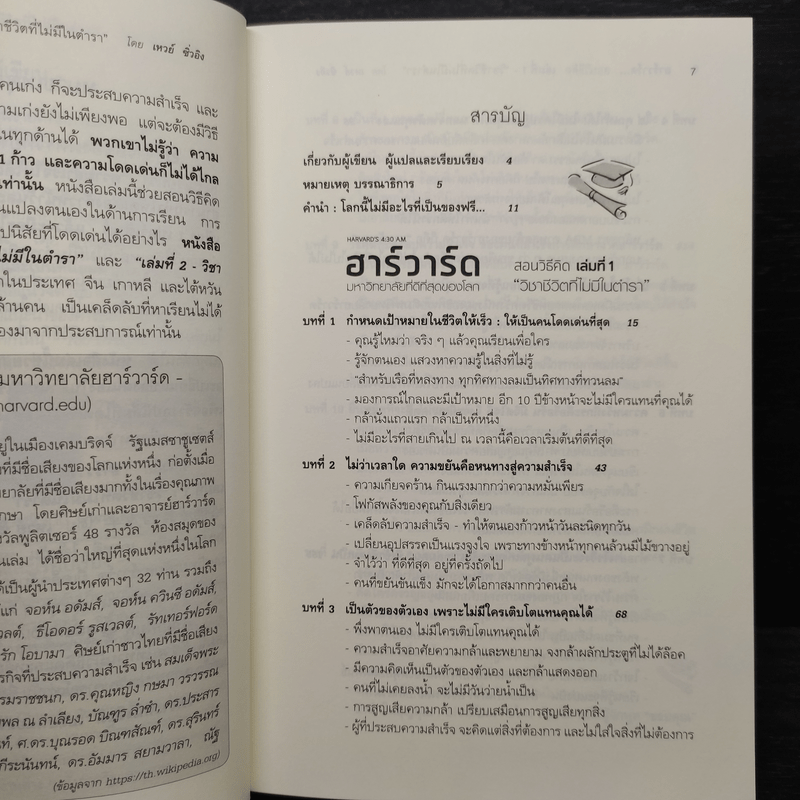 าชีวิตที่ไม่มีในตำรา” โดย เหวย์ ซิ่วอิง
คนเก่ง ก็จะประสบความสำเร็จ และ
ามเก่งยังไม่เพียงพอ แต่จะต้องมีวิธี
นทุกด้านได้ พวกเขาไม่รู้ว่า ความ
1 ก้าว และความโดดเด่นก็ไม่ได้ไกล
เท่านั้น หนังสือเล่มนี้ช่วยสอนวิธีคิด
นแปลงตนเองในด้านการเรียน การ
ปนิสัยที่โดดเด่นได้อย่างไร หนังสือ
ไม่มีในตำรา” และ “เล่มที่ 2 - วิชา
าในประเทศ จีน เกาหลี และไต้หวัน
ล้านคน เป็นเคล็ดลับที่หาเรียนไม่ได้
องมาจากประสบการณ์เท่านั้น
มหาวิทยาลัยฮาร์วาร์ด -
harvard.edu)
ยู่ในเมืองเคมบริดจ์ รัฐแมสซาชูเซตส์
ที่มีชื่อเสียงของโลกแห่งหนึ่ง ก่อตั้งเมื่อ
ทยาลัยที่มีชื่อเสียงมากทั้งในเรื่องคุณภาพ
กษา โดยศิษย์เก่าและอาจารย์ฮาร์วาร์ด
งวัลพูลิตเซอร์ 48 รางวัล ห้องสมุดของ
นเล่ม ได้ชื่อว่าใหญ่ที่สุดแห่งหนึ่งในโลก
ด้เป็นผู้นำประเทศต่างๆ 32 ท่าน รวมถึง
แก่ จอห์น อดัมส์, จอห์น ควินซี อดัมส์,
วลต์, ธีโอดอร์ รูสเวลต์, รัทเทอร์ฟอร์ด
รัก โอบามา ศิษย์เก่าชาวไทยที่มีชื่อเสียง
รกิจที่ประสบความสำเร็จ เช่น สมเด็จพระ
รมราชชนก, ดร.คุณหญิง กษมา วรวรรณ
พล ณ ลำเลียง, บัณฑูร ล่ำซำ, ดร.ประสาร
ท์, ศ.ดร.บุณรอด บิณฑสัณฑ์, ดร.สุรินทร์
กีระนันทน์, ดร.อัมมาร สยามวาลา, ณัฐ
(ข้อมูลจาก https://th.wikipedia.org)
7
สารบัญ
เกี่ยวกับผู้เขียน ผู้แปลและเรียบเรียง 4
หมายเหตุ บรรณาธิการ 5
คำนำ : โลกนี้ไม่มีอะไรที่เป็นของฟรี... 11
HARVARD'S 4:30 A.M.
ฮาร์วาร์ด
มหาวิทยาลัยที่ดีที่สุดของโลก
สอนวิธีคิด เล่มที่ 1
“วิชาชีวิตที่ไม่มีในตำรา”
บทที่ 1 กำหนดเป้าหมายในชีวิตให้เร็ว : ให้เป็นคนโดดเด่นที่สุด 15
- คุณรู้ไหมว่า จริง ๆ แล้วคุณเรียนเพื่อใคร
- รู้จักตนเอง แสวงหาความรู้ในสิ่งที่ไม่รู้
- “สำหรับเรือที่หลงทาง ทุกทิศทางลมเป็นทิศทางที่ทวนลม”
- มองการณ์ไกลและมีเป้าหมาย อีก 10 ปีข้างหน้าจะไม่มีใครแทนที่คุณได้
- กล้านั่งแถวแรก กล้าเป็นที่หนึ่ง
- ไม่มีอะไรที่สายเกินไป ณ เวลานี้คือเวลาเริ่มต้นที่ดีที่สุด
บทที่ 2 ไม่ว่าเวลาใด ความขยันคือหนทางสู่ความสำเร็จ 43
- ความเกียจคร้าน กินแรงมากกว่าความหมั่นเพียร
- โฟกัสพลังของคุณกับสิ่งเดียว
- เคล็ดลับความสำเร็จ - ทำให้ตนเองก้าวหน้าวันละนิดทุกวัน
- เปลี่ยนอุปสรรคเป็นแรงจูงใจ เพราะทางข้างหน้าทุกคนล้วนมีไม้ขวางอยู่
- จำไว้ว่า ที่ดีที่สุด อยู่ที่ครั้งถัดไป
- คนที่ขยันขันแข็ง มักจะได้โอกาสมากกว่าคนอื่น
บทที่ 3 เป็นตัวของตัวเอง เพราะไม่มีใครเติบโตแทนคุณได้ 68
- พึ่งพาตนเอง ไม่มีใครเติบโตแทนคุณได้
- ความสำเร็จอาศัยความกล้าและพยายาม จงกล้าผลักประตูที่ไม่ได้ล๊อค
- มีความคิดเห็นเป็นตัวของตัวเอง และกล้าแสดงออก
- คนที่ไม่เคยลงน้ำ จะไม่มีวันว่ายน้ำเป็น
- การสูญเสียความกล้า เปรียบเสมือนการสูญเสียทุกสิ่ง
- ผู้ที่ประสบความสำเร็จ จะคิดแต่สิ่งที่ต้องการ และไม่ใส่ใจสิ่งที่ไม่ต้องการ